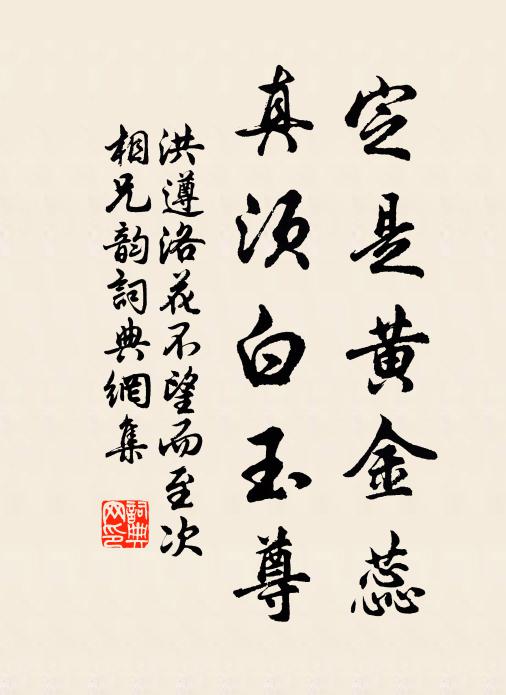 定是黄金蕊
真须白玉尊
洪遵洛花不望而至次
相兄韵词典网集
词典网印